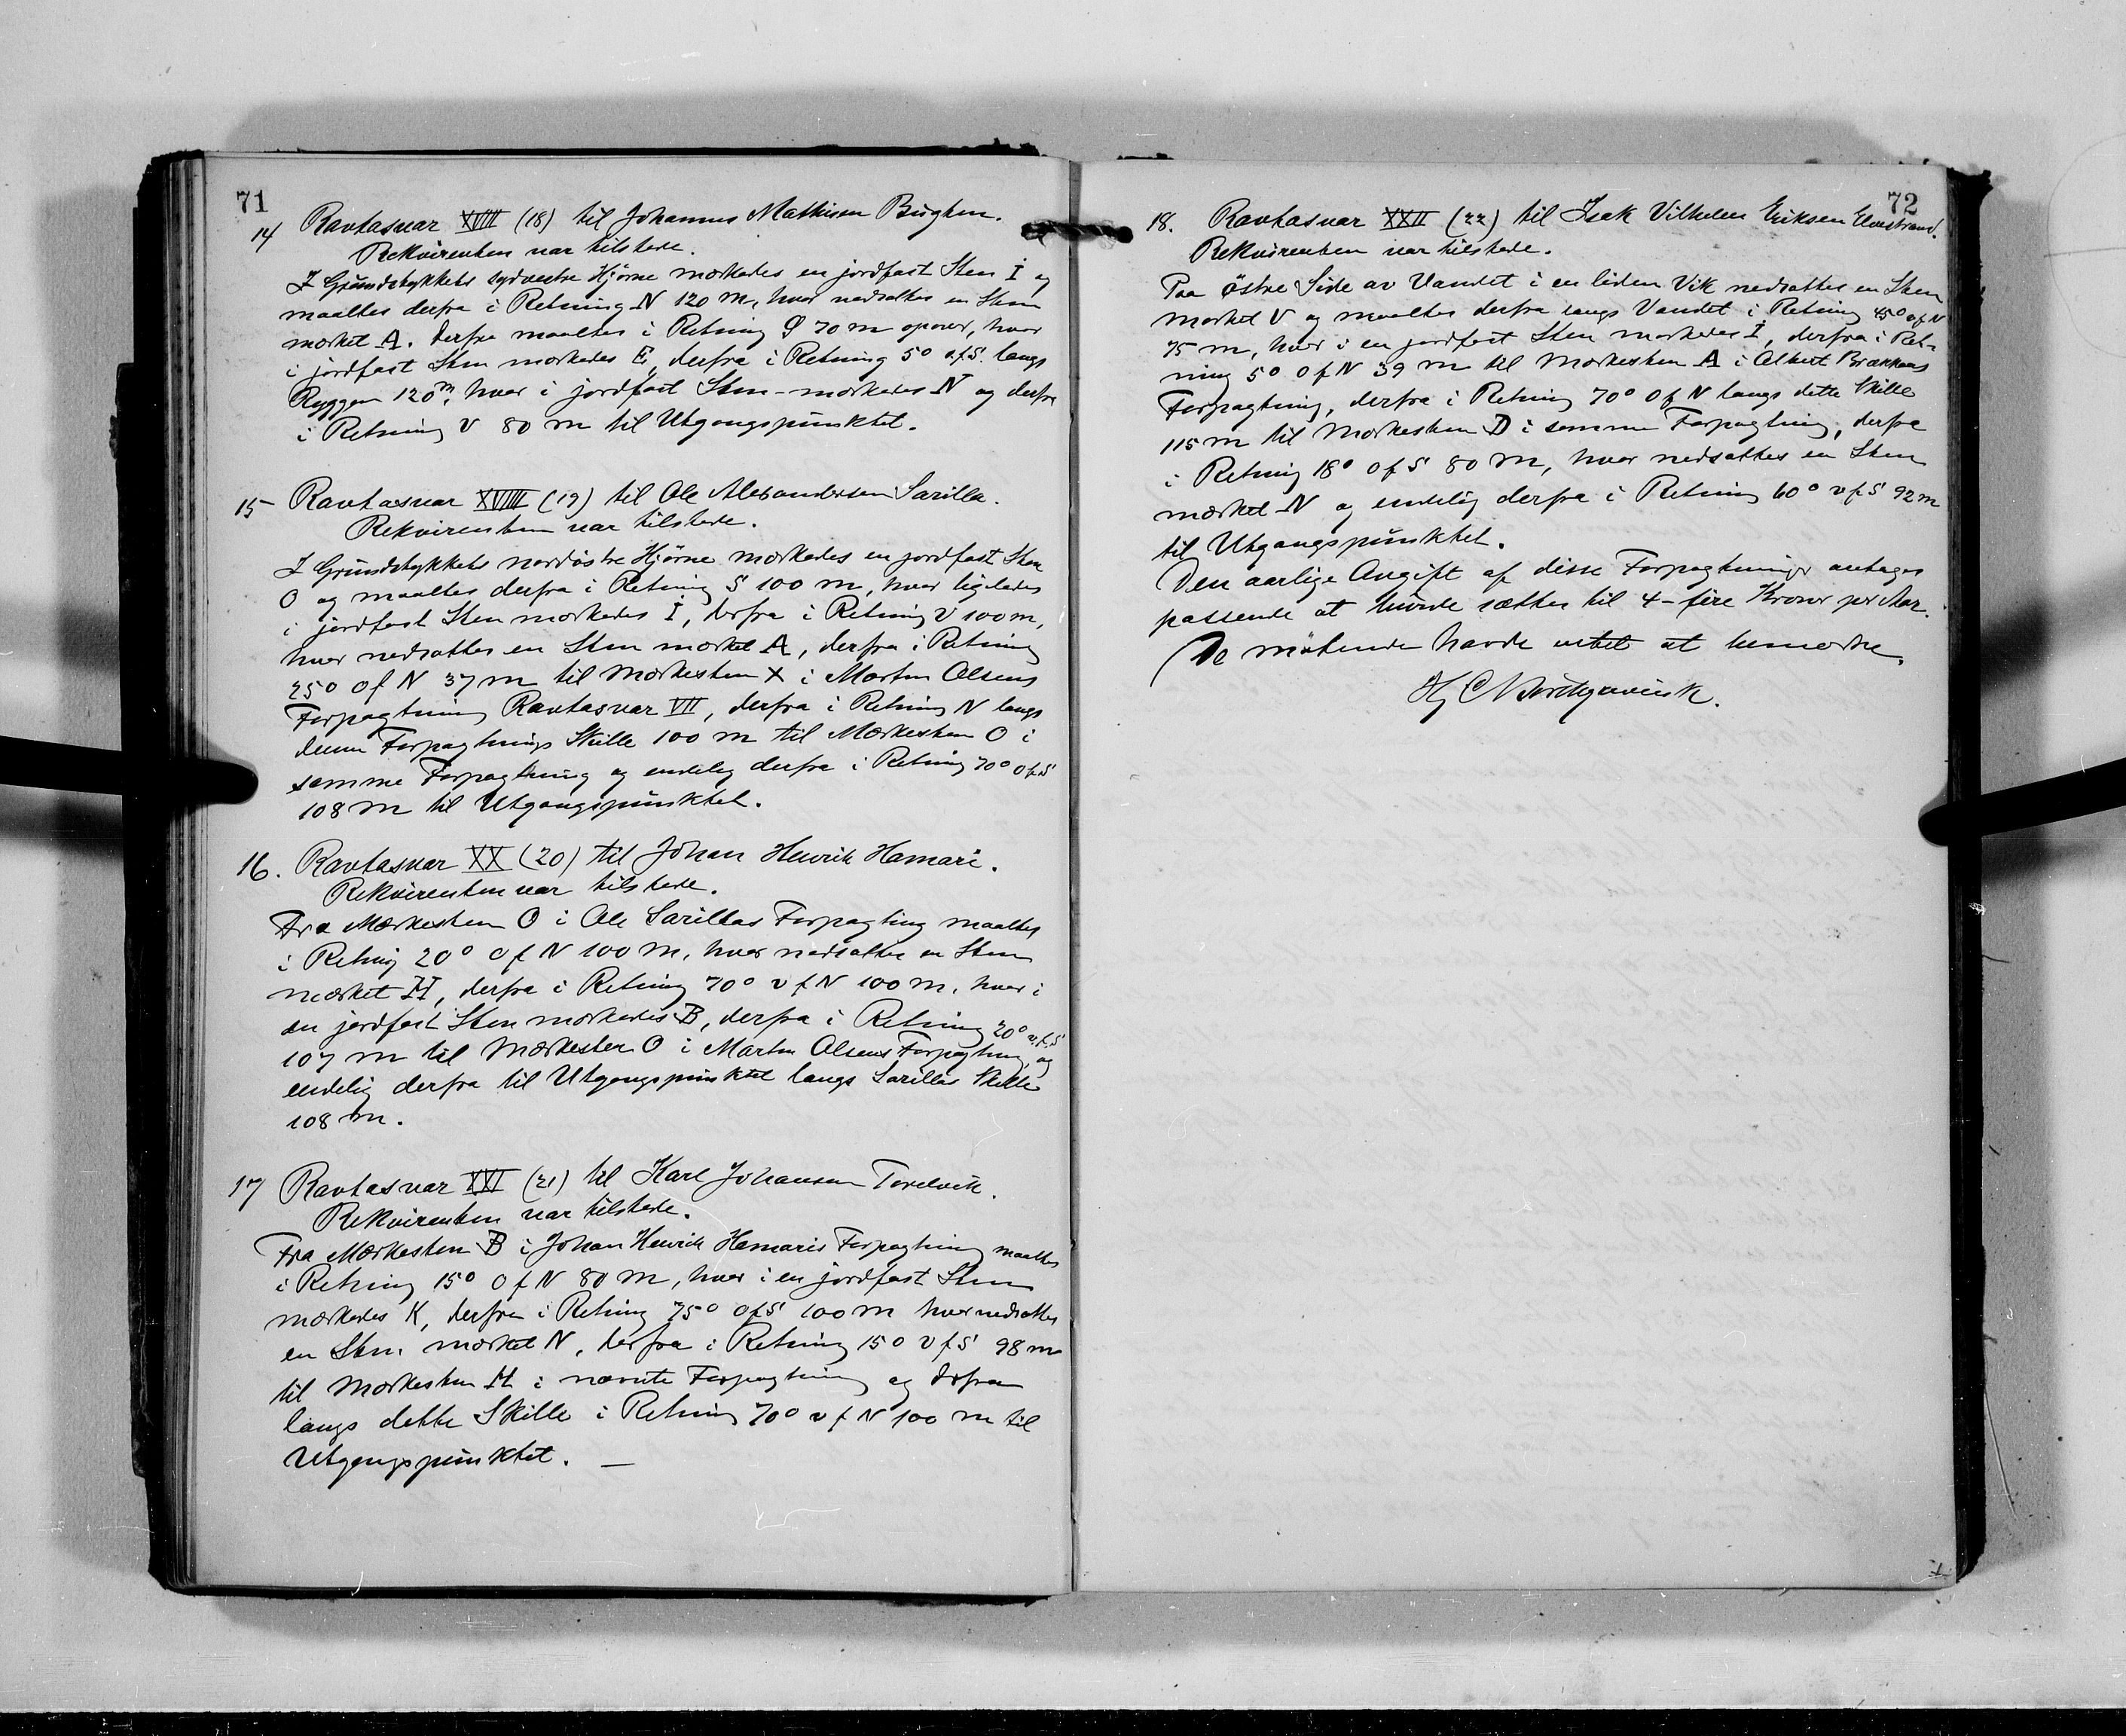 71
14 Ravtasvar XVIII (18) til Johannes Mathisen Bugten.
Rekvirenten var tilstede.
I Grundstykkets sydvestre Hjørne merkedes en jordfast Sten I og
maaltes derfra i Retning N 120 m, hvor nedsattes en Sten
merket A. Derfra maaltes i Retning Ø 70 m opover, hvor
i jordfast Sten merkedes E, derfra i Retning 5° o.f.S. langs
Ryggen 120 m, hvor i jordfast Sten merkedes N og derfra
i Retning V 80 m til Utgangspunktet.
15 Ravtasvar XVIIII (19) til Ole Alexandersen Sarilla.
Rekvirenten var tilstede.
I Grundstykkets nordøstre Hjørne merkedes en jordfast Sten
O og maaltes derfra i Retning S 100 m, hvor ligeledes
i jordfast Sten merkedes I, derfra i Retning V 100 m,
hvor nedsattes en Sten merket A, derfra i Retning
25° O f N 37 m til Merkesten X i Morten Olsens
Forpagtning Ravtasvar VII, derfra i Retning N langs
denne Forpagtnings Skille 100 m til Merkesten O i
samme Forpagtning og endelig derfra i Retning 70° O f S
108 m til Utgangspunktet.
16. Ravtasvar XX (20) til Johan Henrik Hamari.
Rekvirenten var tilstede.
Fra Merkesten O i Ole Sarillas Forpagting maaltes
i Retning 20° O f N 100 m, hvor nedsattes en Sten
merket H, derfra i Retning 70° v f N 100 m, hvor i
en jordfast Sten merkedes B, derfra i Retning 20° v.f.S
107 m til Merkesten O i Morten Olsens Forpagtning og
endelig derfra til Utgangspunktet langs Sarillas Skille
108 m.
17 Ravtasvar XXI (21) til Karl Johansen Torelvik.
Rekvirenten var tilstede.
Fra Merkesten B i Johan Henrik Hamaris Forpagtning maaltes
i Retning 15° O f N 80 m, hvor i en jordfast Sten
merkedes K, derfra i Retning 75° O f S 100 m hvor nedsattes
en Sten merket N, derfra i Retning 15° V f S 98 m
til Merkesten H i nævnte Forpagtning og derfra
langs dette Skille i Retning 70° v f N 100 m til
Utgangspunktet. —
72
18. Ravtasvar XXII (22) til Isak Vilhelm Eriksen Elvestrand.
Rekvirenten var tilstede.
Paa østre Side av Vandet i en liden Vik nedsattes en Sten
merket V og maaltes derfra langs Vandet i Retning 45° o f N
75 m, hvor i en jordfast Sten merkedes I, derfra i Ret-
ning 5° O f N 39 m til Merkesten A i Albert Brækkans
Forpagtning, derfra i Retning 70° O f N langs dette Skille
115 m til Merkesten D i samme Forpagtning, derfra
i Retning 18° O f S 80 m, hvor nedsattes en Sten
merket N og endelig derfra i Retning 60° v f S 92 m
til Utgangspunktet.
Den aarlige Avgift af disse Forpagtninger antages
passende at burde sættes til 4 - fire Kroner pr Aar.
De møtende havde intet at bemerke.